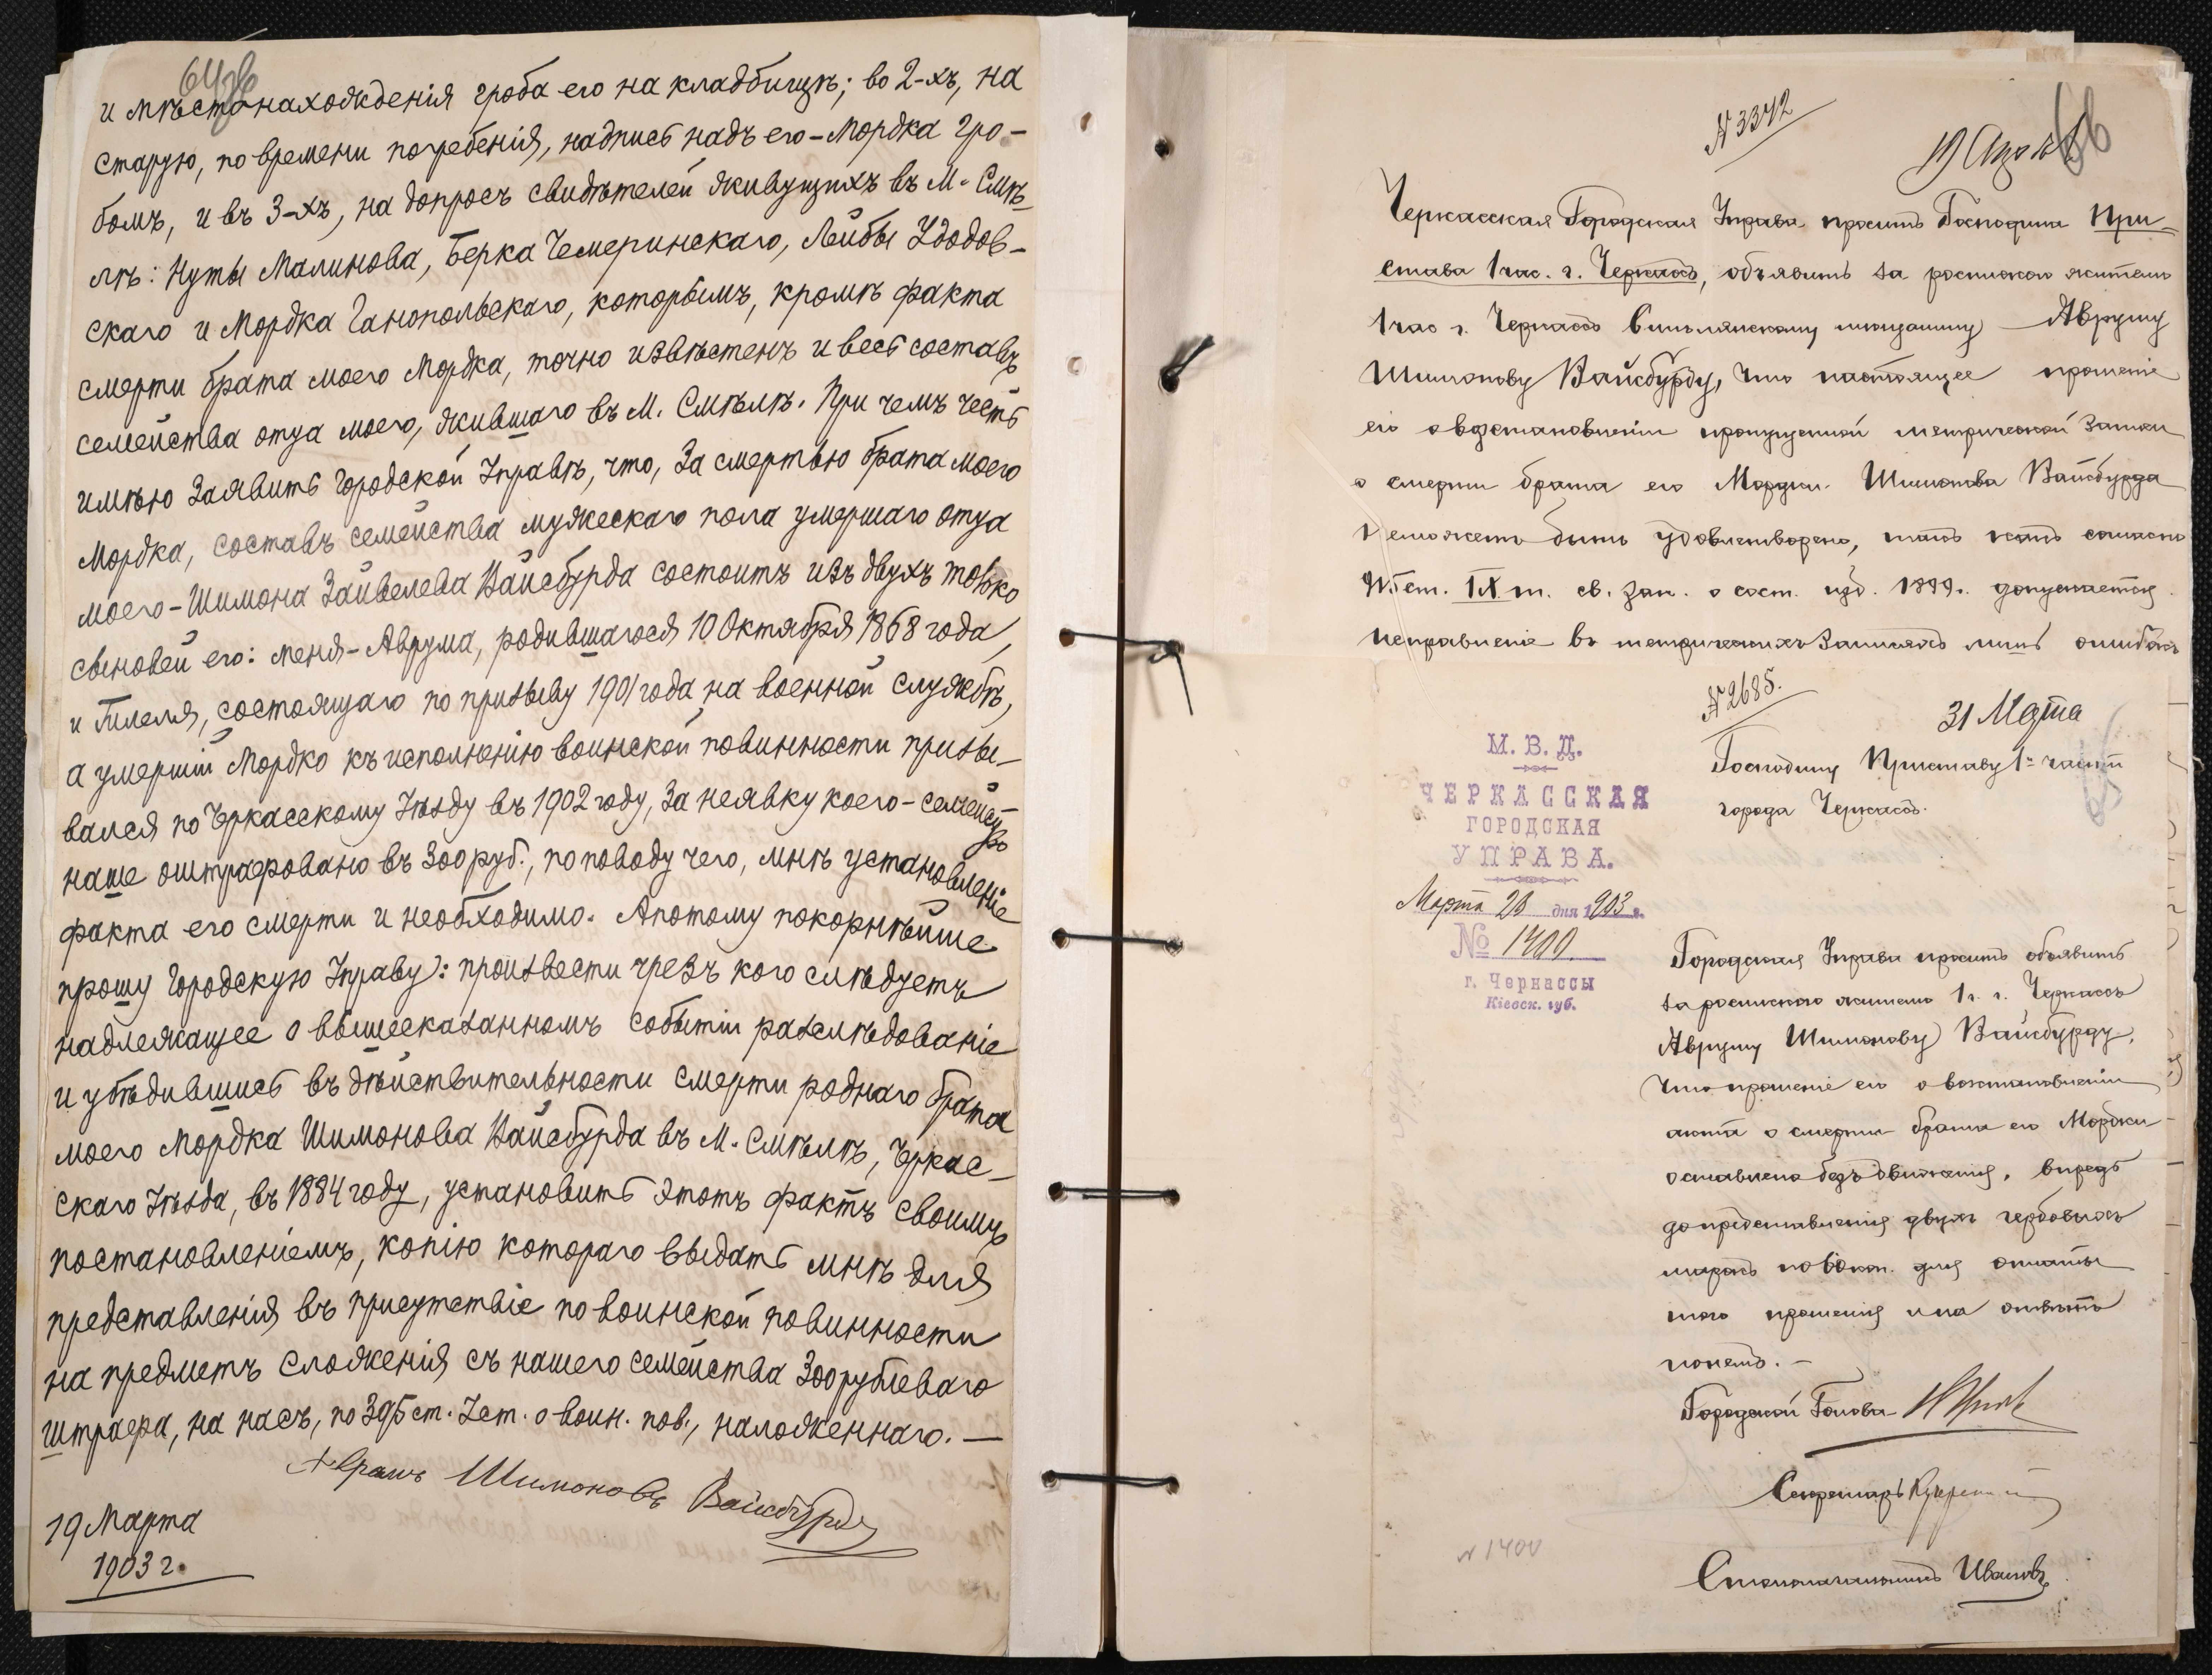 и мѣстонахожденія гроба его на кладбищѣ; во 2-хъ, на
старую, по времени погребенія, надпись надъ его-Мордка гро-
бомъ, и въ 3-хъ, на допросъ свидѣтелей живущихъ въ М. Смѣ-
лѣ: Нуты Малинова, Берка Чемеринскаго, Лейбы Удодов-
скаго и Мордка Ганопольскаго, которымъ, кромѣ факта
смерти брата моего Мордка, точно извѣстенъ и весь составъ
семейства отца моего, жившаго въ М. Смѣлѣ. При чемъ честь
имѣю заявить Городской Управѣ, что, за смертью брата моего
Мордка, составъ семейства мужескаго пола умершаго отца
моего-Шимона Зайвелева Вайсбурда состоитъ изъ двухъ только
сыновей его: меня-Аврума, родившагося 10 Октября 1868 года,
и Гилеля, состоящаго по призыву 1901 года на военной службѣ,
а умершій Мордко къ исполненію воинской повинности призы-
вался по Черкасскому Уѣзду въ 1902 году, за неявку коего-семейство
наше оштрафовано въ 300 руб., по поводу чего, мнѣ установленіе
факта его смерти и необходимо. А потому покорнѣйше
прошу Городскую Управу: произвести чрезъ кого слѣдуетъ
надлежащее о вышесказанномъ событіи разслѣдованіе
и убѣдившись въ дѣйствительности смерти роднаго брата
моего Мордка Шимонова Вайсбурда въ М. Смѣлѣ, Черкас-
скаго Уѣзда, въ 1884 году, установить этотъ фактъ своимъ
постановленіемъ, копію котораго выдать мнѣ для
представленія въ присутствіе по воинской повинности
на предметъ сложенія съ нашего семейства 300 рублеваго
штрафа, на насъ, по 395 ст. Уст. о воин. пов., наложеннаго. —
Аврамъ Шимоновъ Вайсбурдъ
19 Марта
1903 г.
№ 3342
19
Черкасская Городская Управа проситъ Господина При-
става 1 час. г. Черкассъ, объявить за роспискою жителю
1 час г. Черкассъ мѣщанину Авруму
Шимонову Вайсбурду, что настоящее прошеніе
его о возстановленіи пропущенной метрической записи
о смерти брата его Мордки Шимонова Вайсбурда
не можетъ быть удовлетворено, такъ какъ согласно
ст. IX т. св. зак. о сост. изд. 1899 г. допускается
исправленіе въ метрическихъ записяхъ лишь ошибокъ
№ 2685.
31 Марта
Господину Приставу 1й части
города Черкассъ.
М. В. Д.
ЧЕРКАССКАЯ
ГОРОДСКАЯ
УПРАВА.
Марта 28 дня 1903 г.
№ 1400
г. Черкассы
Кіевск. губ.
Городская Управа проситъ объявить
за роспискою жителю 1 ч. г. Черкассъ
Авруму Шимонову Вайсбурду,
что прошеніе его о возстановленіи
акта о смерти брата его Мордки
оставлено безъ движенія, впредь
до представленія двухъ гербовыхъ
марокъ по 60 коп. для оплаты
того прошенія и на отвѣтъ
по немъ. —
Городской Голова
Секретарь
Столоначальникъ Ивановъ
№ 1400